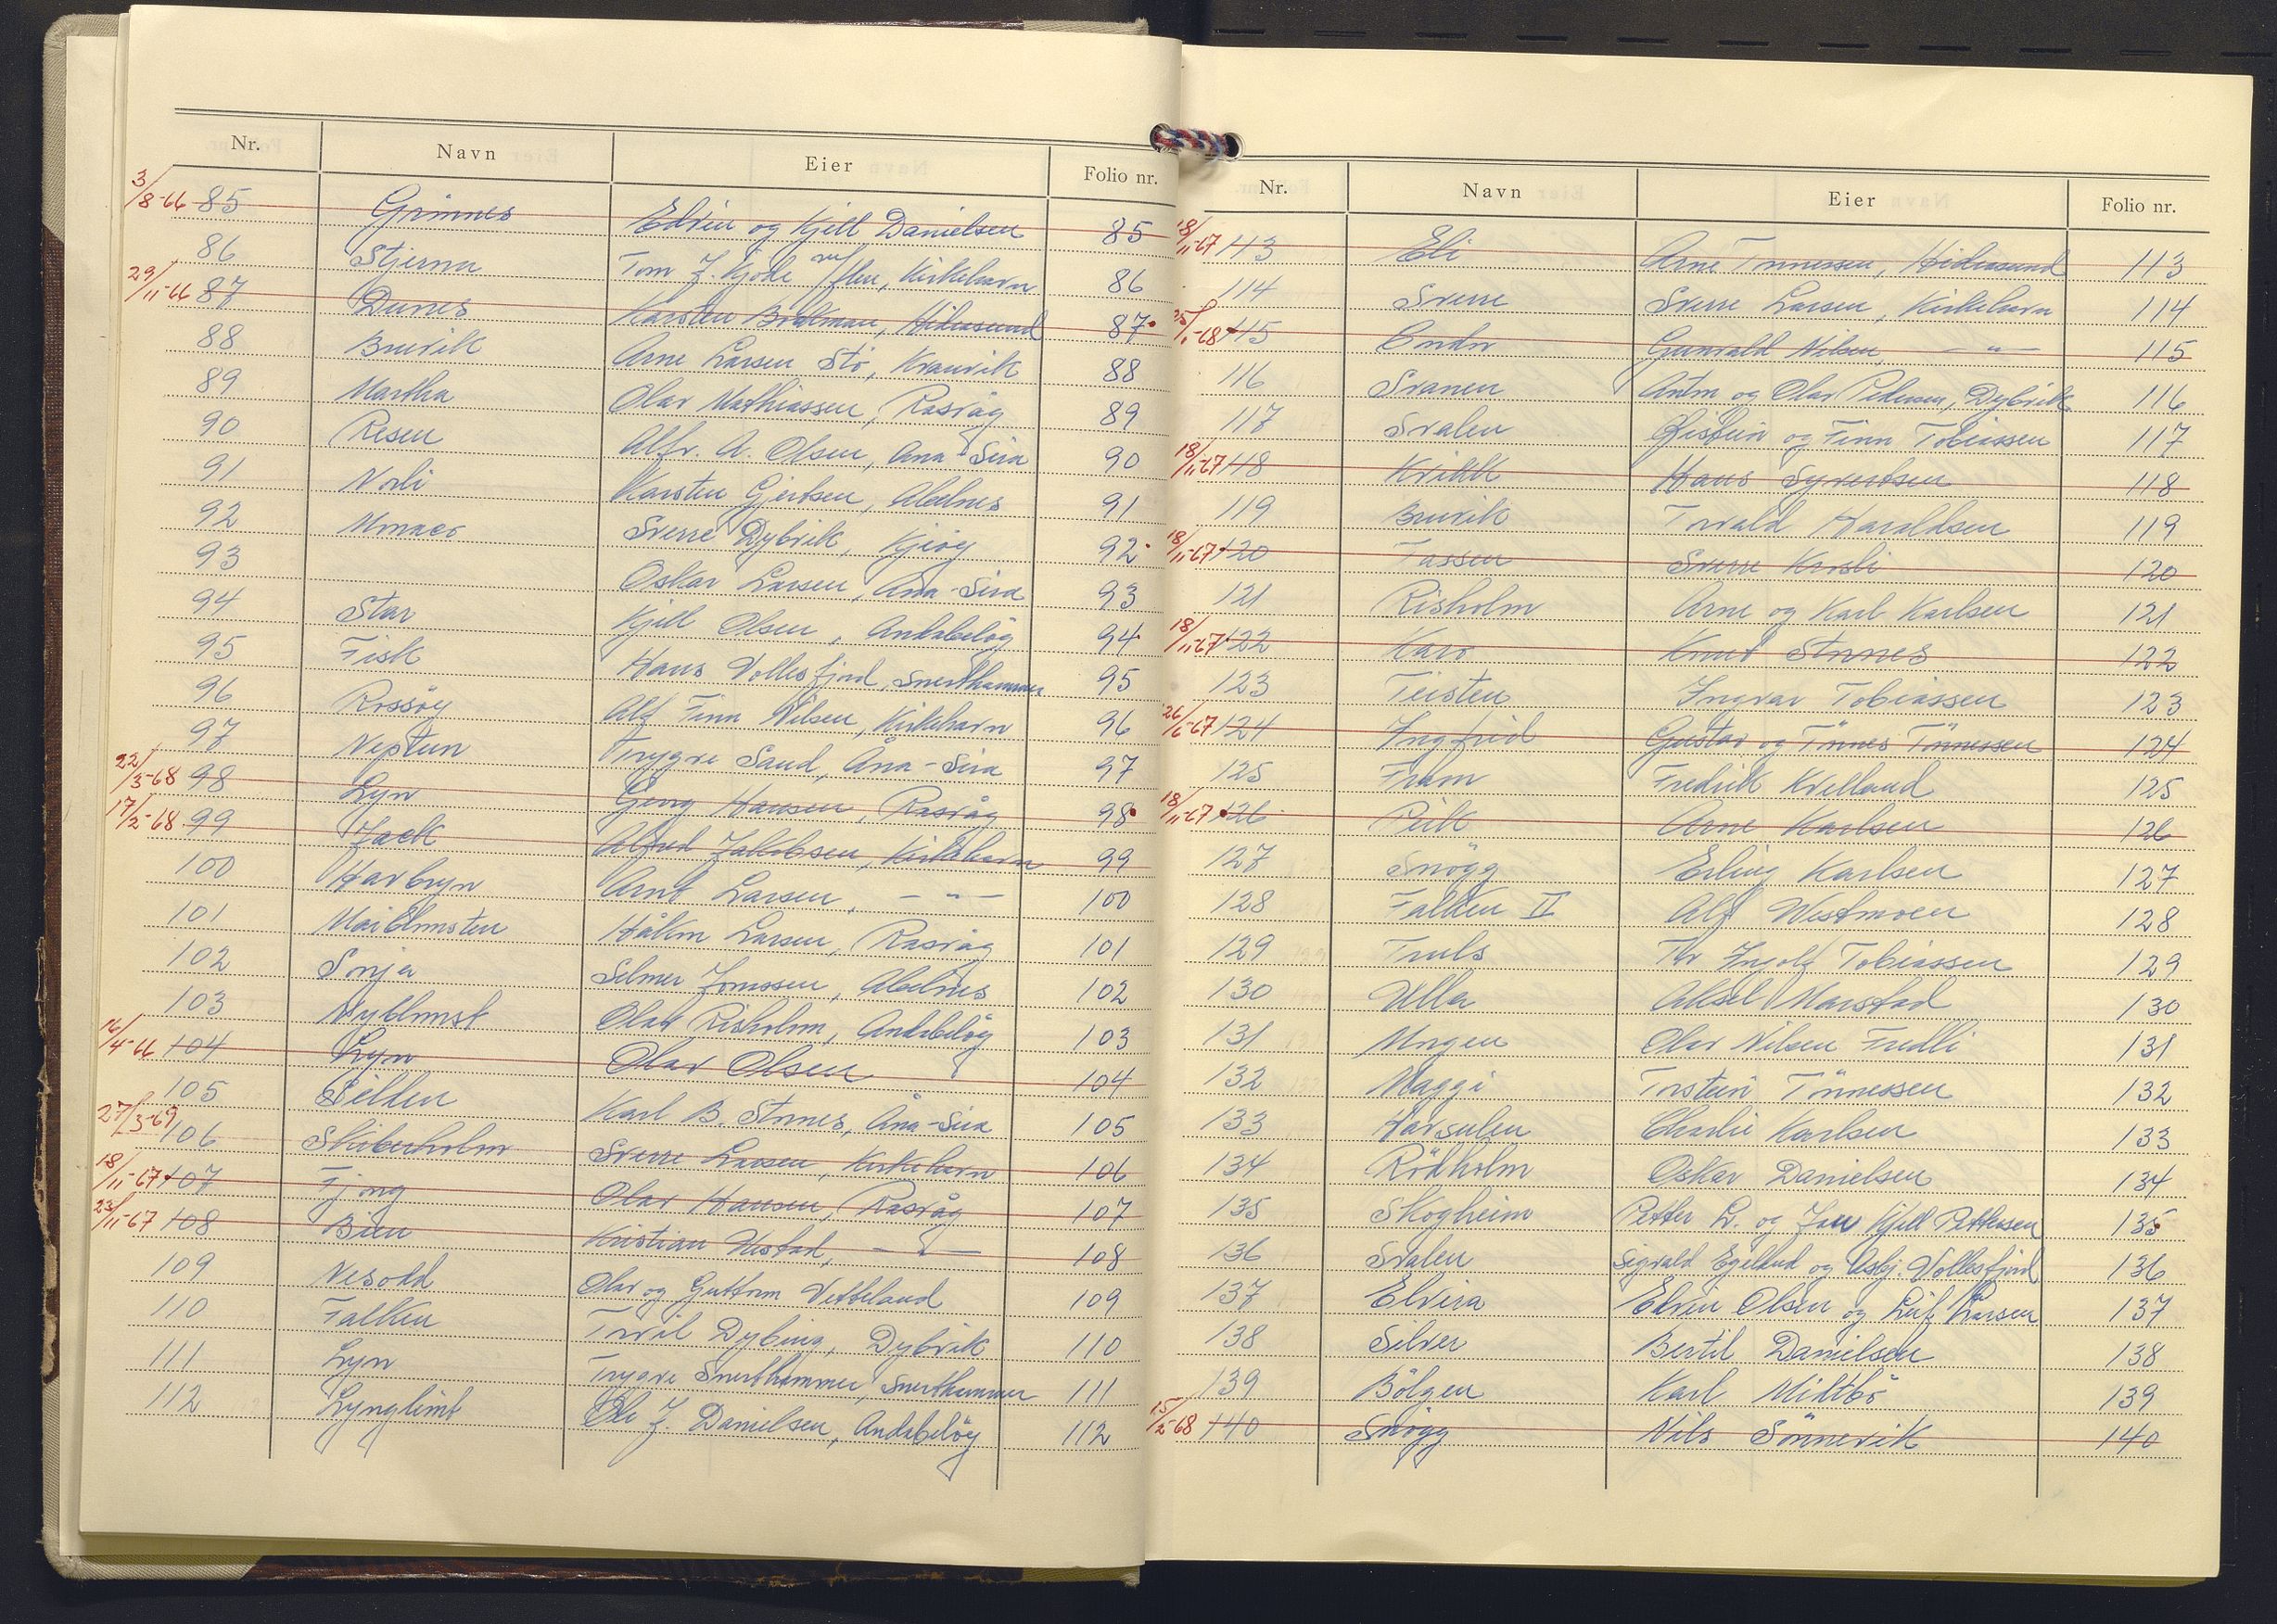 Nr. Navn Eier Folio nr.
3/8-66 85 Grinnes Edvin og Kjell Danielsen 85
86 Stjerna Tom J. Kjode m/flu, Kirkehavn 86
29/11-66 87 Dunes Karsten Brekman, Hidrasund 87
88 Bruvik Arne Larsen Stö, Kranvik 88
89 Martha Olav Mathiassen, Rasvåg 89
90 Resen Alfr. A. Olsen, Ana-Sira 90
91 Norli Karsten Gjertsen, Abelnes 91
92 Monaco Sverre Dybvik, Kjiöy 92
93 Oskar Larsen, Ana-Sira 93
94 Star Kjell Olsen, Andabelöy 94
95 Fisk Hans Vollesfjord, Snerthammer 95
96 Rossöy Alf Finn Nilsen, Kirkehavn 96
97 Neptun Trygve Saud, Åna-Sira 97
22/3-68 98 Lyn Georg Hansen, Rasvåg 98
17/2-68 99 Jack Alfred Jakobsen, Kirkehavn 99
100 Havbryn Arnt Larsen, - " - 100
101 Maiblomsten Håkon Larsen, Rasvåg 101
102 Sonja Selmer Jonassen, Abelnes 102
103 Nyblomst Olav Risholm, Andabelöy 103
16/4-66 104 Lyn Olav Olsen 104
105 Silden Karl B. Stornes, Åna-Sira 105
27/3-69 106 Skiberholm Sverre Larsen, Kirkehavn 106
18/11-67 107 Fjong Olav Hansen, Rasvåg 107
23/11-67 108 Bien Kristian Ulstad, - " - 108
109 Nesodd Olav og Guttorm Vetteland 109
110 Falken Torvil Dybing, Dybvik 110
111 Lyn Trygve Snerthammer, Snerthammer 111
112 Lynglimt Ole J. Danielsen, Andabelöy 112
Nr. Navn Eier Folio nr.
18/11-67 113 Eli Arne Tönnessen, Hidrasund 113
114 Sverre Sverre Larsen, Kirkehavn 114
25/1-68 115 Condor Gunvald Nilsen, - " - 115
116 Svanen Anton og Olav Pedersen, Dybvik 116
117 Svalen Öistein og Finn Tobiassen 117
18/11-67 118 Kvikk Hans Syvertsen 118
119 Bruvik Torvald Haraldsen 119
18/11-67 120 Tassen Sverre Korsli 120
121 Risholm Arne og Karl Karlsen 121
18/11-67 122 Karo Knut Stornes 122
123 Teisten Ingvar Tobiassen 123
26/6-67 124 Ingfrid Gustav og Tönnes Tönnessen 124
125 Fram Fredrik Kvelland 125
18/11-67 126 Peik Arne Karlsen 126
127 Snögg Erling Karlsen 127
128 Falken II Alf Westmoen 128
129 Truls Thv Ingolf Tobiassen 129
130 Ulla Aksel Marstad 130
131 Ungen Olav Nilsen Fredli 131
132 Maggi Torstein Tönnessen 132
133 Havsulen Charlie Karlsen 133
134 Rödholm Oskar Danielsen 134
135 Skogheim Petter L. og Jan Kjell Pettersen 135
136 Svalen Sigvald Egeland og Asbj. Vollesfjord 136
137 Elvira Edvin Olsen og Leif Larsen 137
138 Silver Bertil Danielsen 138
139 Bölgen Karl Midtbö 139
15/2-68 140 Snögg Nils Sönnevik 140